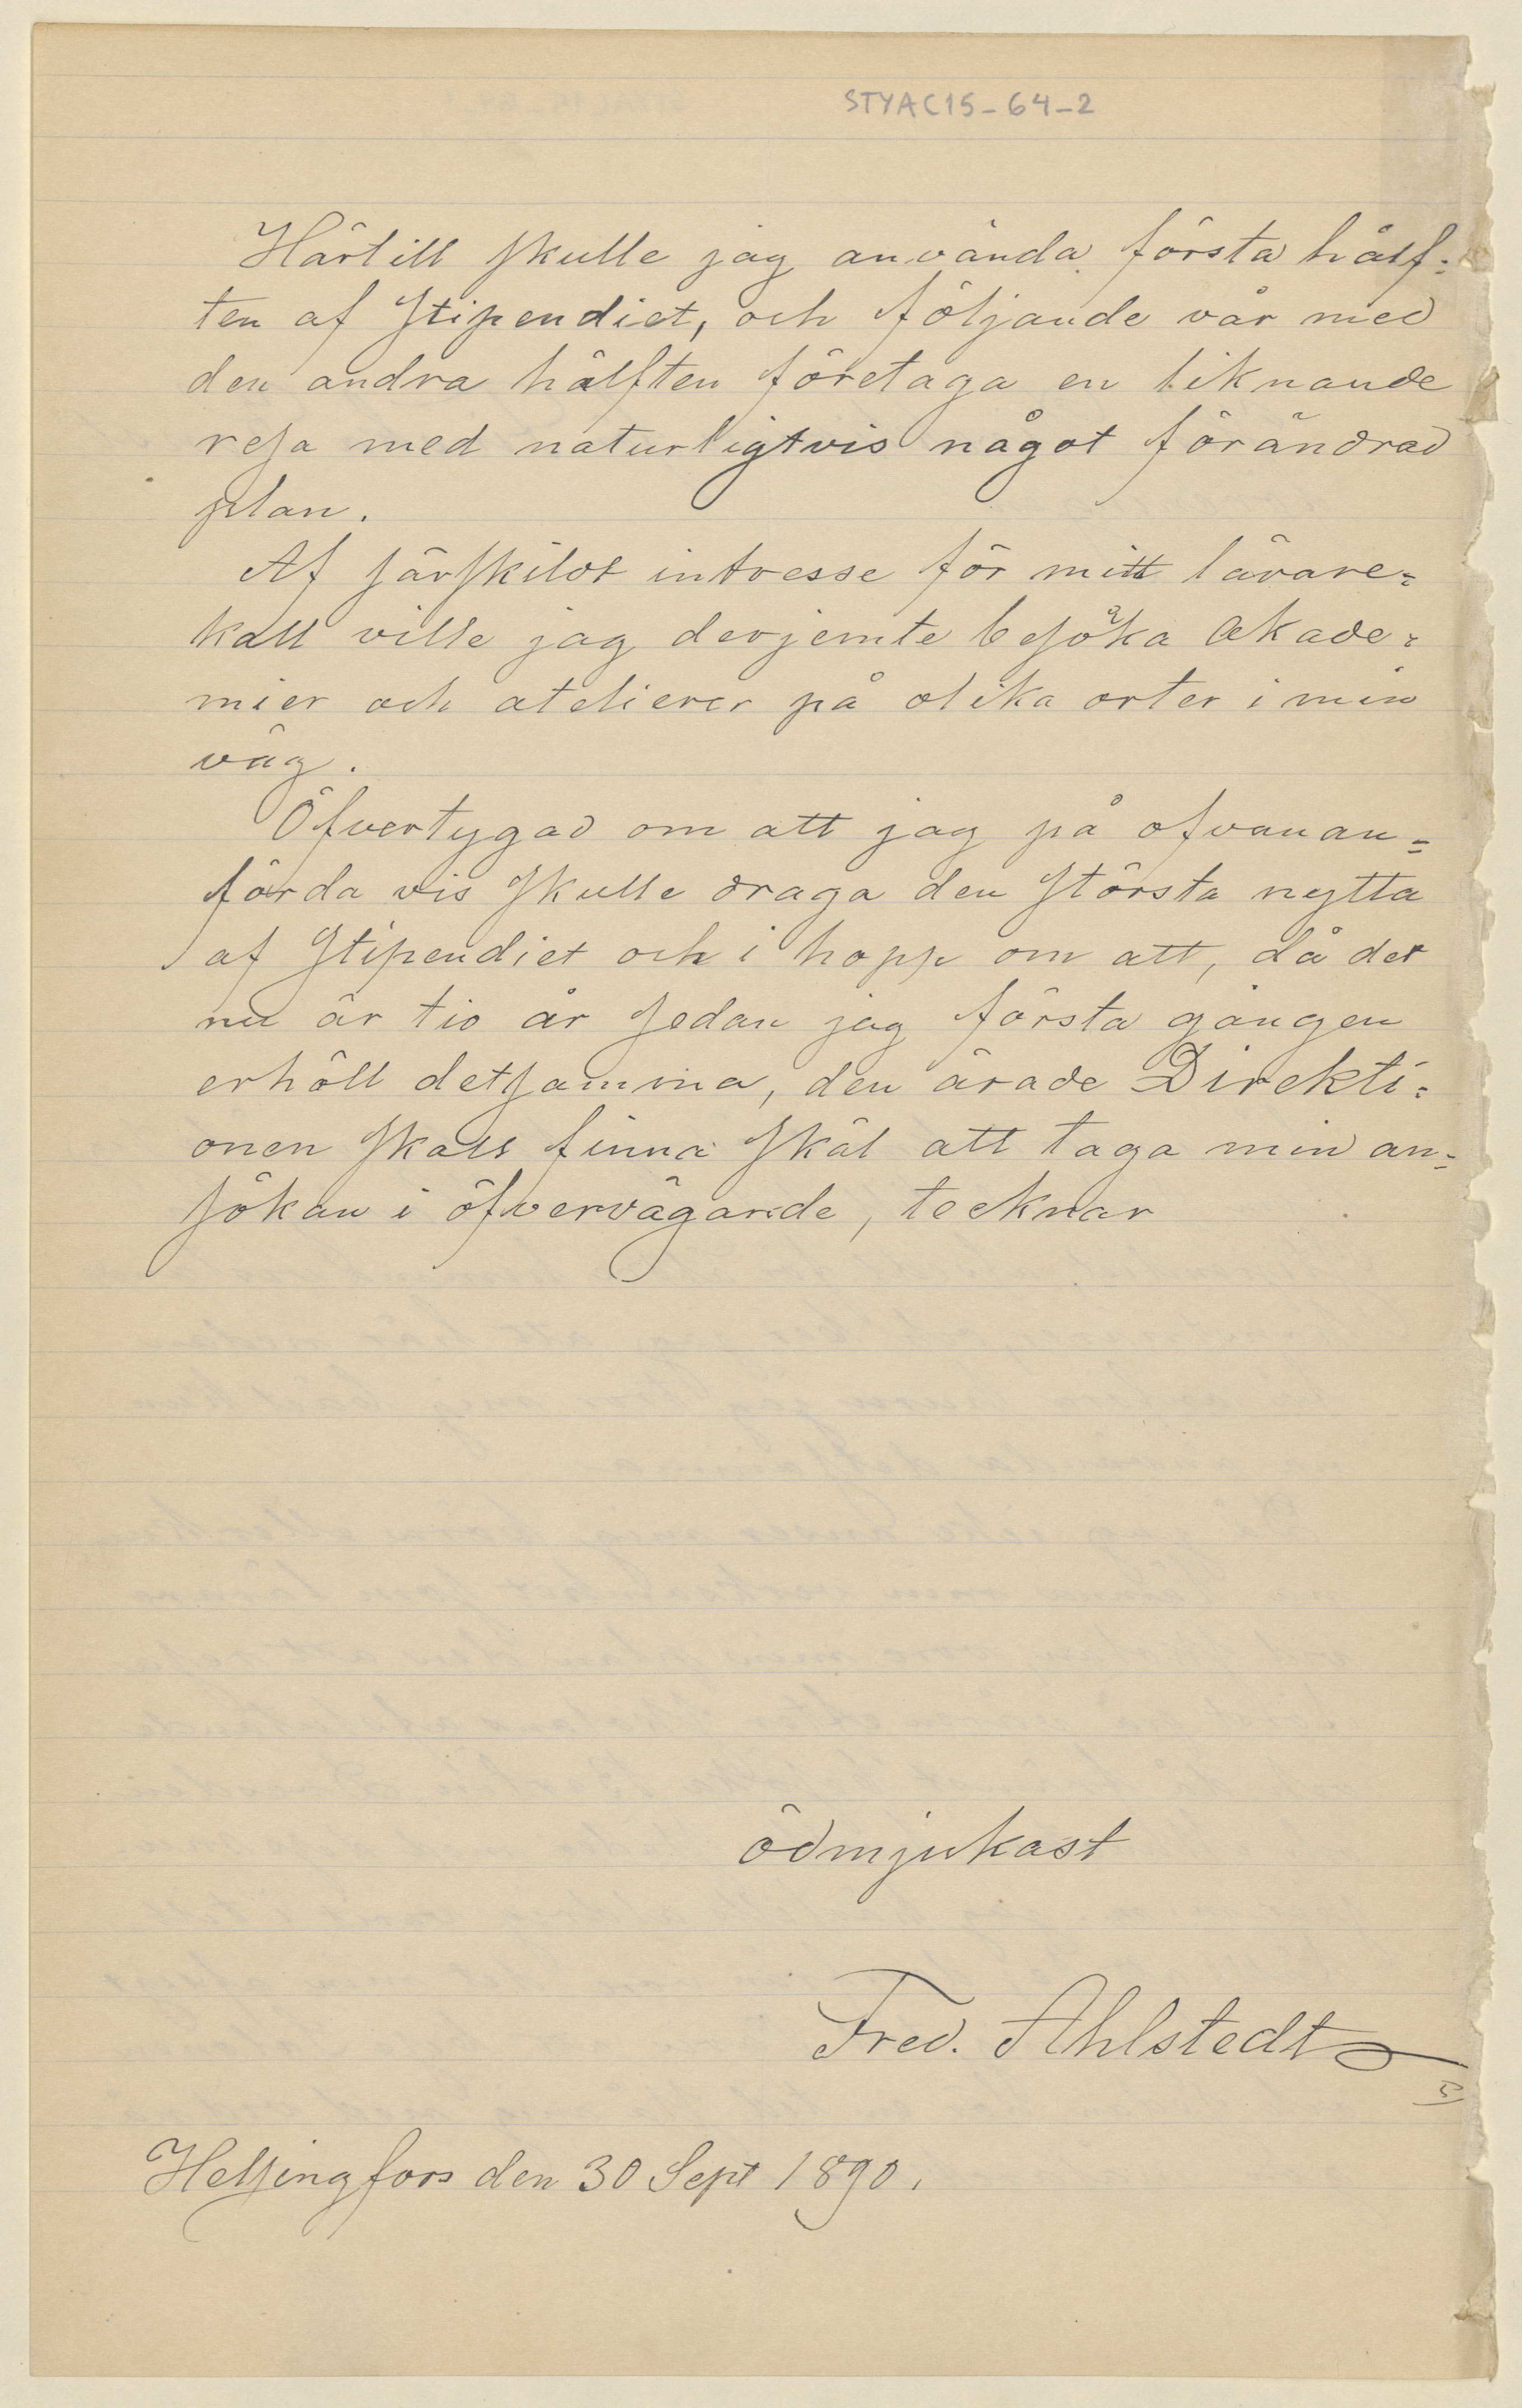 STYAC15-64-2
Härtill skulle jag använda första hälf=
ten af stipendiet, och följande vår med
den andra hälften företaga en liknande
resa med naturligtvis något förändrad
plan.
Af särskildt intresse för mitt lärare=
kall ville jag derjemte besöka akade=
mier och atelierer på olika orter i min
väg.
Öfvertygad om att jag på ofvanan=
förda vis skulle draga den största nytta
af stipendiet och i hopp om att, då det
nu är tio år sedan jag första gången
erhöll detsamma, den ärade Direkti=
onen skall finna skäl att taga min an=
sökan i öfvervägande, tecknar
ödmjukast
Fred. Ahlstedt
Helsingfors den 30 Sept 1890.